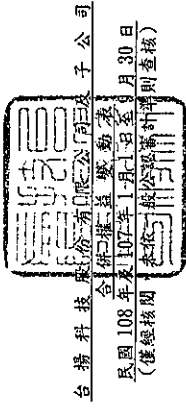 台揚科技股份有限公司及子公司
合併權益變動表
民國 108 年及 107 年 1 月 1 日至 9 月 30 日
(僅經核閱 未依一般公認審計準則查核)